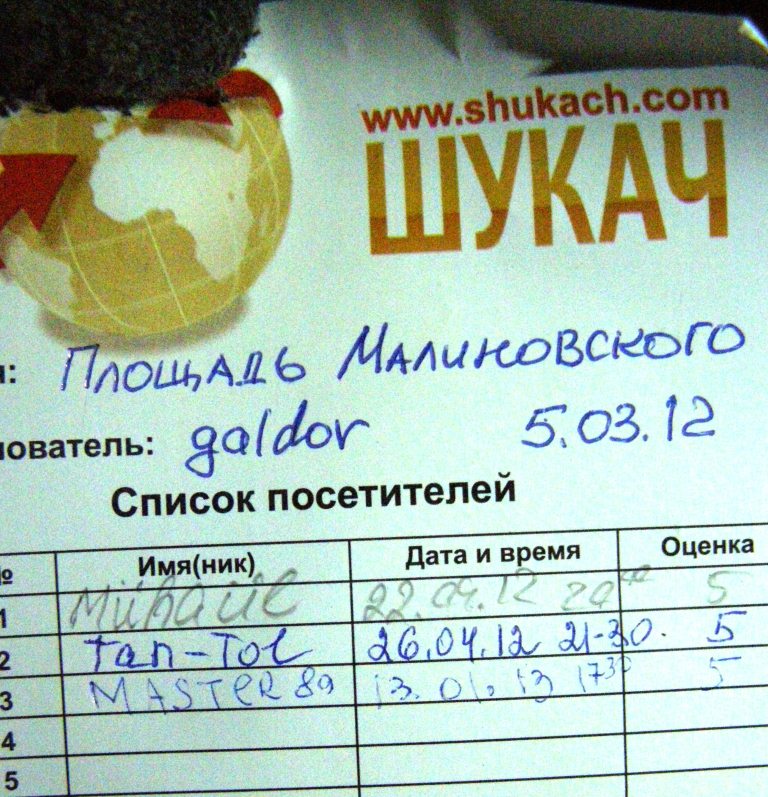 www.shukach.com
ШУКАЧ
я: Площадь Малиновского
нователь: galdor 5.03.12
Список посетителей
№ Имя(ник) Дата и время Оценка
1 22.04.12 5
2 Tan-Tol 26.04.12 21-30. 5
3 MASTER 89 13.01.13 17 30 5
4
5